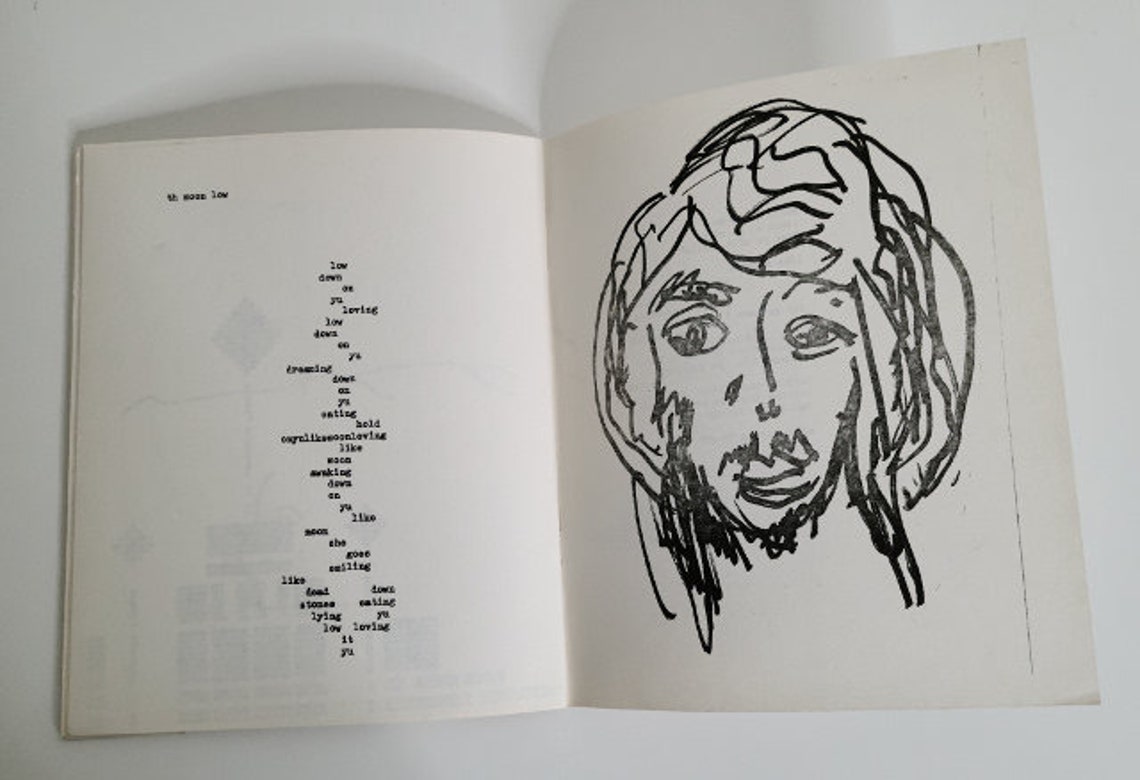 th moon low
low
down
on
yu
loving
low
down
on
yu
dreaming
down
on
yu
eating
hold
onyulikemoonloving
like
moon
awaking
down
on
yu
like
moon
she
goes
smiling
like
dead down
stones eating
lying yu
low loving
it
yu